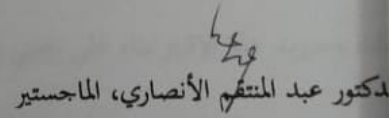 لدكتور عبد المنتقم الأنصاري، الماجستير